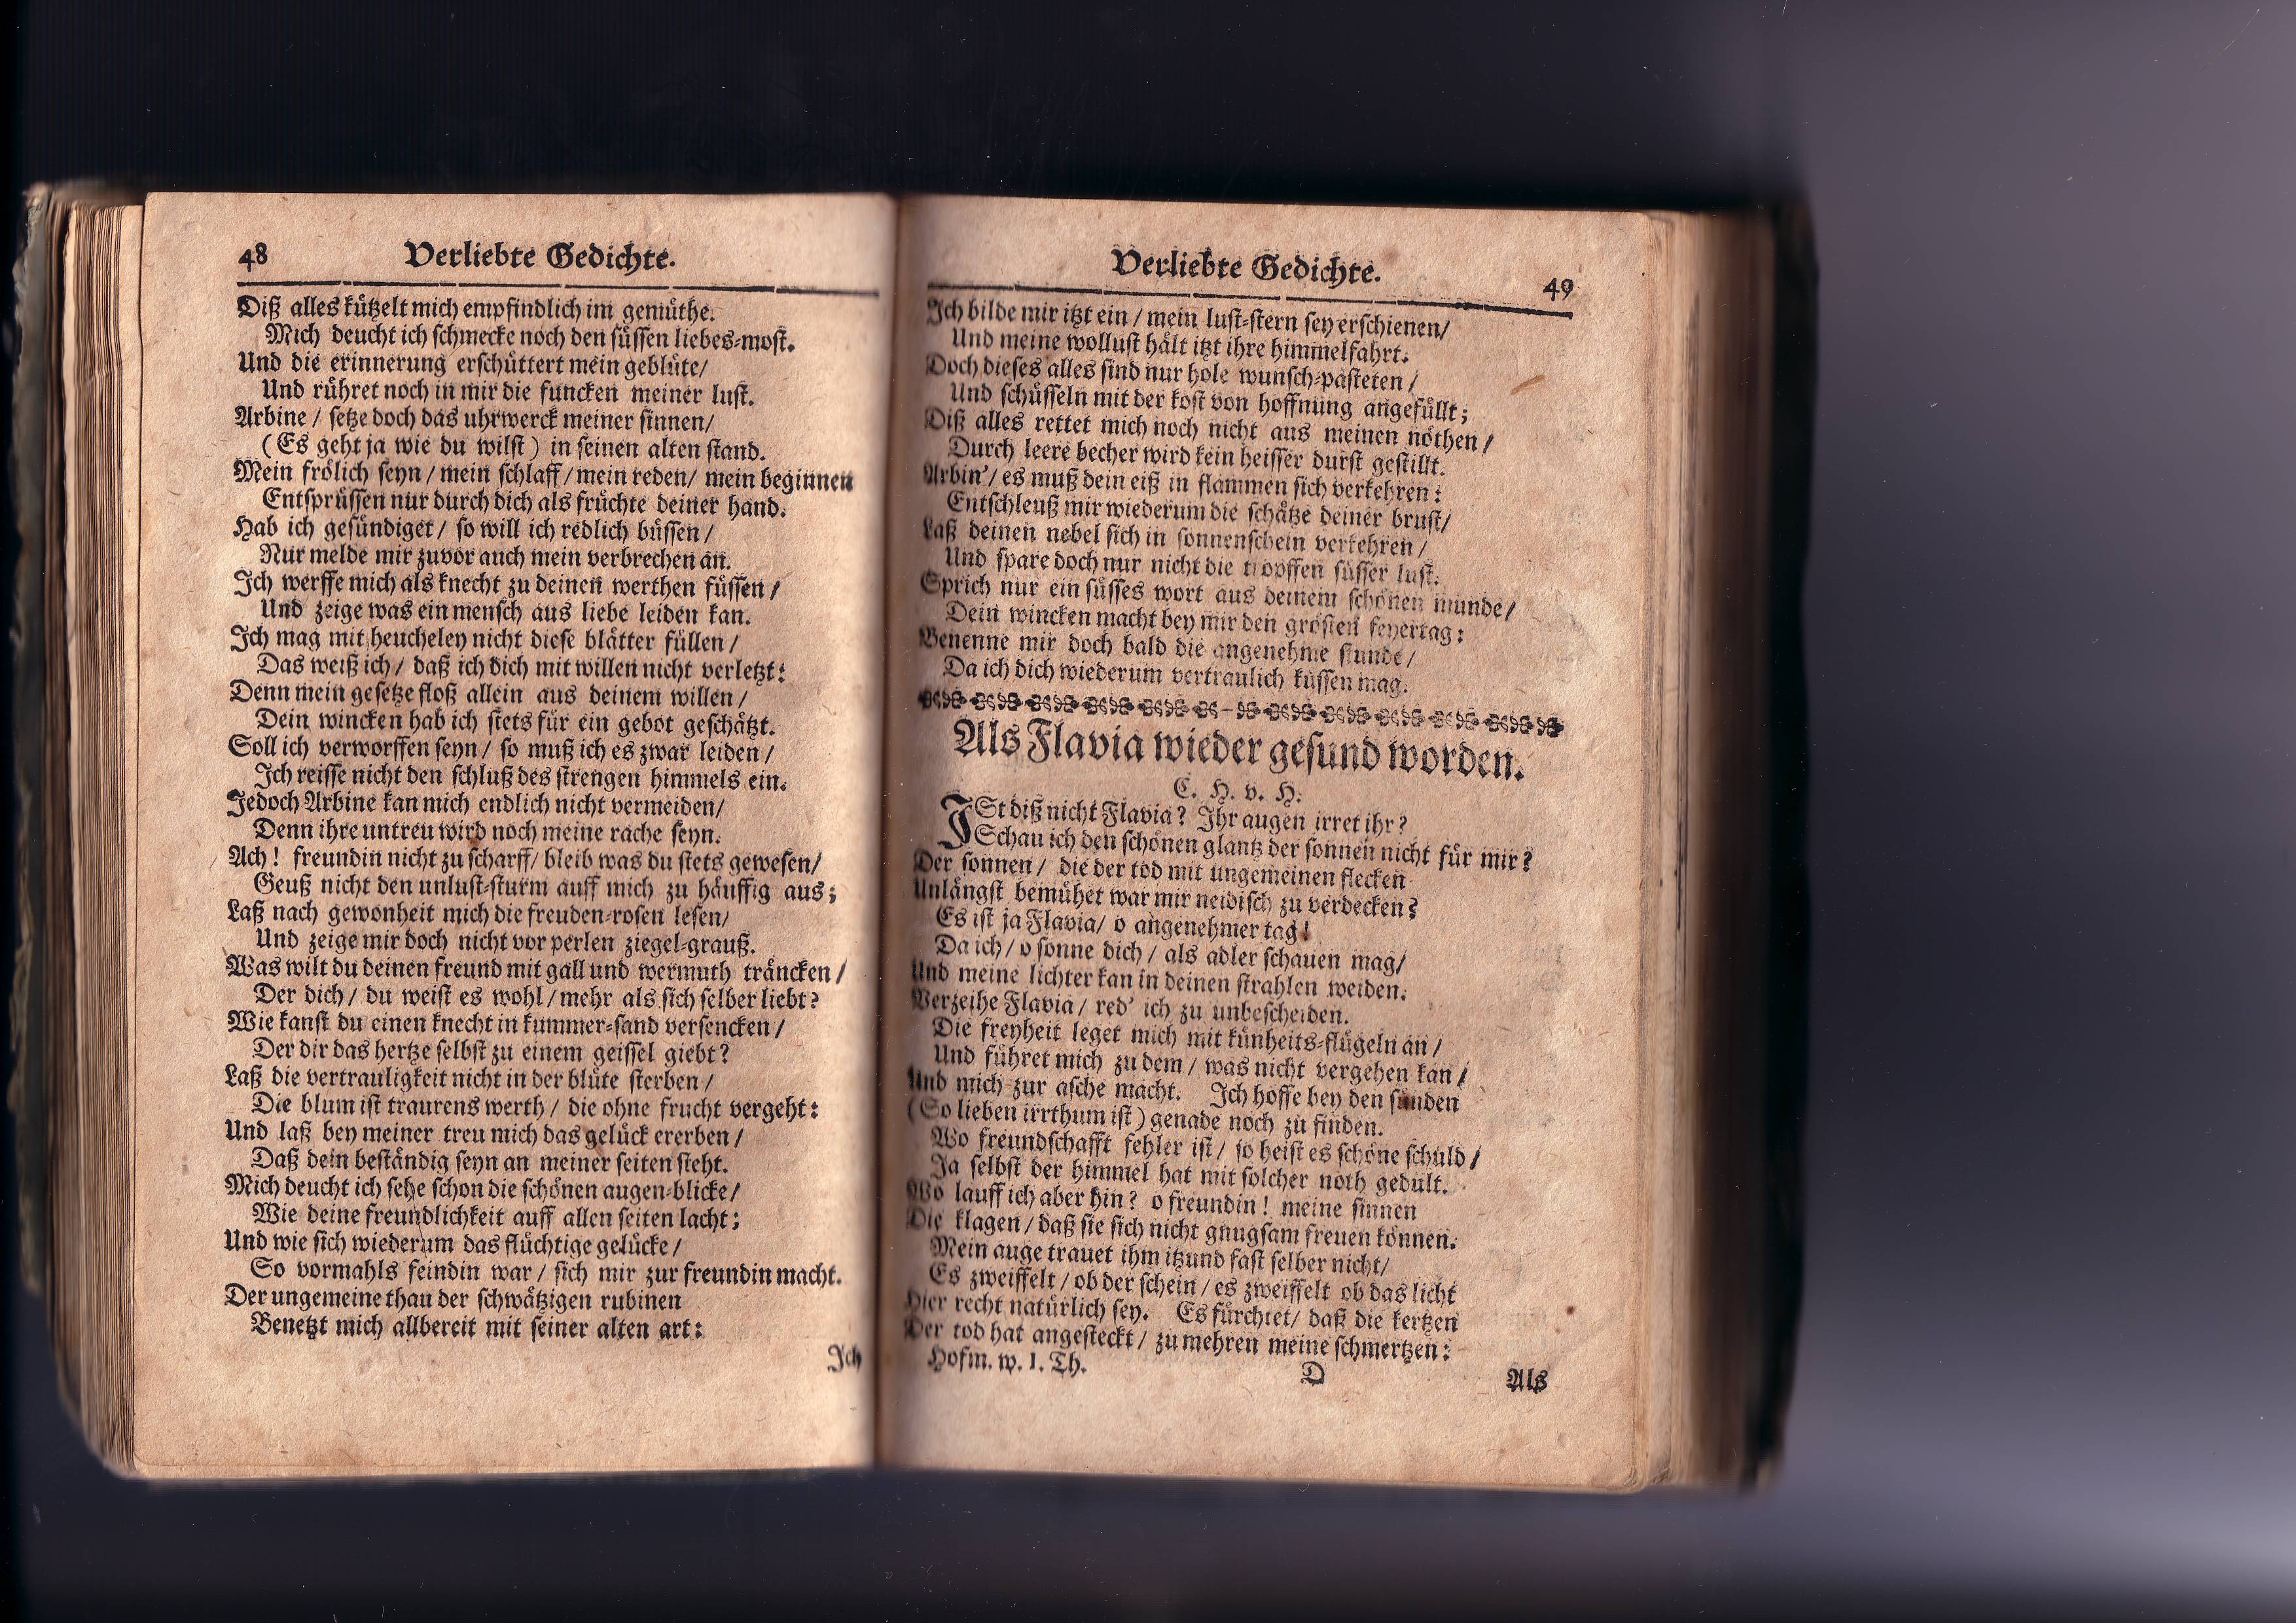 48 Verliebte Gedichte.
Diß alles kützelt mich empfindlich im gemüthe.
Mich deucht ich schmecke noch den süssen liebes-most.
Und die erinnerung erschüttert mein geblüte/
Und rühret noch in mir die funcken meiner lust.
Arbine / setze doch das uhrwerck meiner sinnen/
(Es geht ja wie du wilst) in seinen alten stand.
Mein frölich seyn / mein schlaff / mein reden / mein beginnen
Entsprüssen nur durch dich als früchte deiner hand.
Hab ich gesündiget / so will ich redlich büssen /
Nur melde mir zuvor auch mein verbrechen an.
Ich werffe mich als knecht zu deinen werthen füssen /
Und zeige was ein mensch aus liebe leiden kan.
Ich mag mit heucheley nicht diese blätter füllen /
Das weiß ich / daß ich dich mit willen nicht verletzt:
Denn mein gesetze floß allein aus deinem willen /
Dein wincken hab ich stets für ein gebot geschätzt.
Soll ich verworffen seyn / so muß ich es zwar leiden /
Ich reisse nicht den schluß des strengen himmels ein.
Jedoch Arbine kan mich endlich nicht vermeiden/
Denn ihre untreu wird noch meine rache seyn.
Ach! freundin nicht zu scharff / bleib was du stets gewesen/
Geuß nicht den unlust-sturm auff mich zu häuffig aus;
Laß nach gewonheit mich die freuden-rosen lesen/
Und zeige mir doch nicht vor perlen ziegel-grauß.
Was wilt du deinen freund mit gall und wermuth träncken /
Der dich / du weist es wohl / mehr als sich selber liebt?
Wie kanst du einen knecht in kummer-sand versencken /
Der dir das hertze selbst zu einem geissel giebt?
Laß die vertrauligkeit nicht in der blüte sterben /
Die blum ist traurens werth / die ohne frucht vergeht:
Und laß bey meiner treu mich das gelück ererben /
Daß dein beständig seyn an meiner seiten steht.
Mich deucht ich sehe schon die schönen augen-blicke /
Wie deine freundlichkeit auff allen seiten lacht;
Und wie sich wiederum das flüchtige gelücke /
So vormahls feindin war / sich mir zur freundin macht.
Der ungemeine thau der schwätzigen rubinen
Benetzt mich allbereit mit seiner alten art:
Ich
Verliebte Gedichte. 49
Ich bilde mir itzt ein / mein lust-stern sey erschienen/
Und meine wollust hält itzt ihre himmelfahrt.
Doch dieses alles sind nur hole wunsch-pasteten /
Und schüsseln mit der kost von hoffnung angefüllt;
Diß alles rettet mich noch nicht aus meinen nöthen /
Durch leere becher wird kein heisser durst gestillt.
Arbin' / es muß dein eiß in flammen sich verkehren:
Entschleuß mir wiederum die schätze deiner brust/
Laß deinen nebel sich in sonnenschein verkehren /
Und spare doch nur nicht die tropffen süsser lust.
Sprich nur ein süsses wort aus deinem schönen munde/
Dein wincken macht bey mir den grösten feyertag:
Benenne mir doch bald die angenehme stunde /
Da ich dich wiederum vertraulich küssen mag.
Als Flavia wieder gesund worden.
C. H. v. H.
ISt diß nicht Flavia? Ihr augen irret ihr?
Schau ich den schönen glantz der sonnen nicht für mir?
Der sonnen / die der tod mit ungemeinen flecken
Unlängst bemühet war mir neidisch zu verdecken?
Es ist ja Flavia / o angenehmer tag!
Da ich / o sonne dich / als adler schauen mag/
Und meine lichter kan in deinen strahlen weiden.
Verzeihe Flavia / red' ich zu unbescheiden.
Die freyheit leget mich mit künheits-flügeln an /
Und führet mich zu dem / was nicht vergehen kan /
Und mich zur asche macht. Ich hoffe bey den sünden
(So lieben irrthum ist) genade noch zu finden.
Wo freundschafft fehler ist / so heist es schöne schuld /
Ja selbst der himmel hat mit solcher noth gedult.
Wo lauff ich aber hin? o freundin! meine sinnen
Die klagen / daß sie sich nicht gnugsam freuen können.
Mein auge trauet ihm itzund fast selber nicht /
Es zweiffelt / ob der schein / es zweiffelt ob das licht
Hier recht natürlich sey. Es fürchtet / daß die kertzen
Der tod hat angesteckt / zu mehren meine schmertzen:
Hofm. w. I. Th. D Als